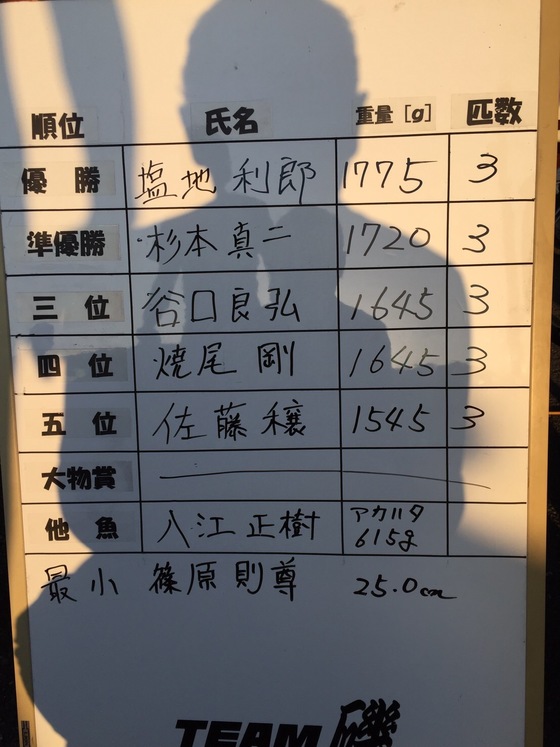 順位 氏名 重量[g] 匹数
優勝 塩地利郎 1775 3
準優勝 杉本真二 1720 3
三位 谷口良弘 1645 3
四位 焼尾剛 1645 3
五位 佐藤穣 1545 3
大物賞
他魚 入江正樹 アカハタ
615g
最小 篠原則尊 25.0cm
TEAM磯